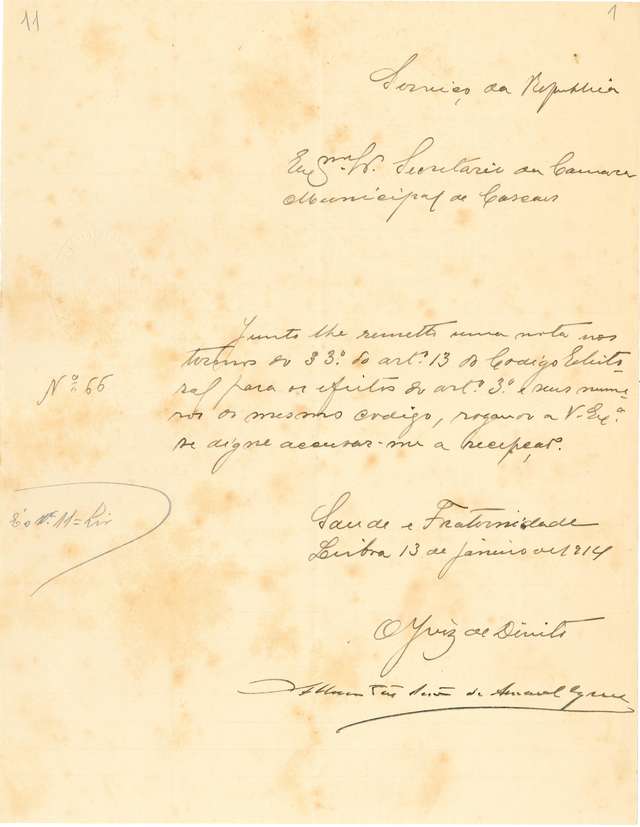 11
1
Serviço da Republica
Exmo. Sr. Secretario da Camara
Municipal de Cascaes
Junto lhe remetto uma nota nos
termos do § 3º do artº 13 do Codigo Eleito-
ral para os efeitos do artº 3º e seus nume-
ros do mesmo codigo, rogando a V. Exª
se digne accusar-me a recepção.
Nº 66
É o Nº 11 = Liv
Saude e Fraternidade
Lisboa 13 de janeiro de 1914
O Juiz de Direito
de Amaral